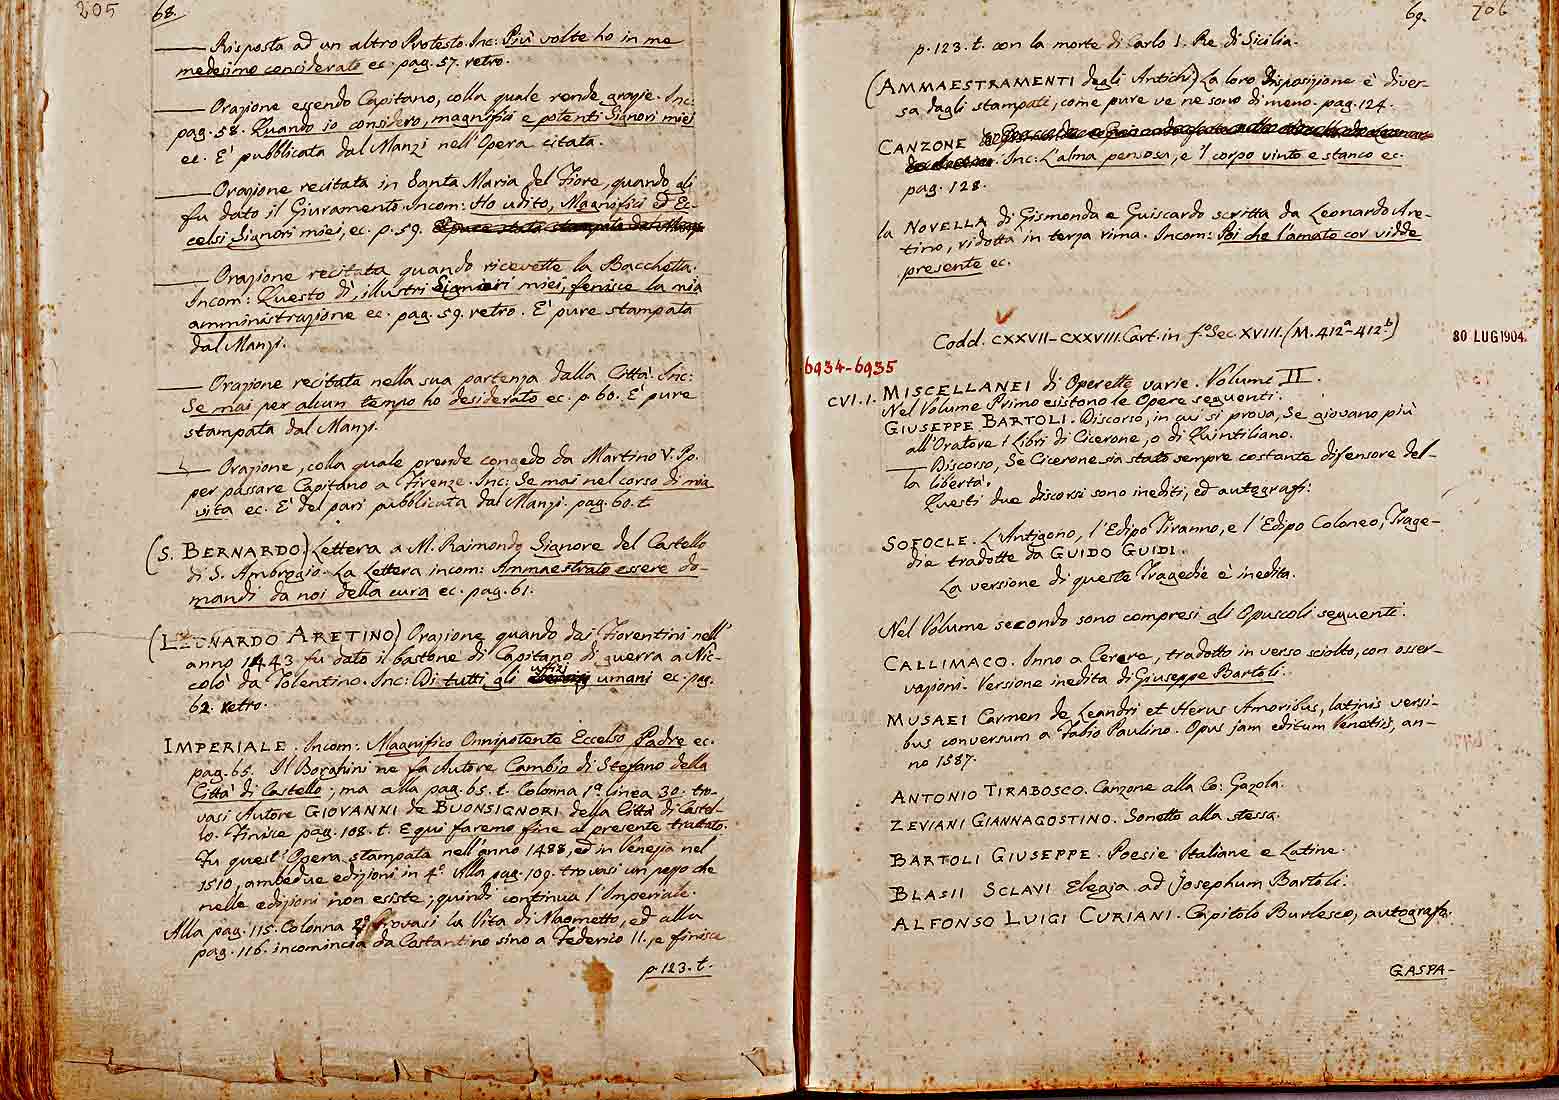 205 68.
—— Risposta ad un altro Protesto. Inc: Più volte ho in me
medesimo considerato ec. pag. 57. retro.
—— Orazione essendo Capitano, colla quale rende grazie. Inc.
pag. 58. Quando io considero, magnifici e potenti Signori miei
ec. E' pubblicata dal Manzi nell'Opera citata.
—— Orazione recitata in Santa Maria del Fiore, quando gli
fu dato il Giuramento. Incom: Ho udito, Magnifici ed Ec-
celsi Signori miei, ec. p. 59. E' pure stata stampata dal Manzi
—— Orazione recitata quando ricevette la Bacchetta.
Incom: Questo dì, illustri Signiori miei, fenisce la mia
amministrazione ec. pag. 59. retro. E' pure stampata
dal Manzi.
—— Orazione recitata nella sua partenza dalla Città. Inc:
Se mai per alcun tempo ho desiderato ec. p. 60. E' pure
stampata dal Manzi.
—— Orazione, colla quale prende congedo da Martino V. Pp.
per passare Capitano a Firenze. Inc: Se mai nel corso di mia
vita ec. E' del pari pubblicata dal Manzi. pag. 60. t
(S. BERNARDO) Lettera a M. Raimondo Signore del Castello
di S. Ambrogio. La Lettera incom: Ammaestrato essere do-
mandi da noi della cura ec. pag. 61.
(LEONARDO ARETINO) Orazione quando dai Fiorentini nell'
anno 1443 fu dato il bastone di Capitano di guerra a Nic-
colò da Tolentino. Inc: Di tutti gli ufizj umani ec. pag.
62. retro.
IMPERIALE. Incom: Magnifico Onnipotente Eccelso Padre ec.
pag. 65. Il Borghini ne fa Autore Cambio di Stefano della
Città di Castello; ma alla pag. 65. t. Colonna 1ª linea 30. tro-
vasi Autore GIOVANNI de BUONSIGNORI della Città di Castel-
lo. Finisce pag. 108. t. E qui faremo fine al presente trattato.
Fu quest'Opera stampata nell'anno 1488, ed in Venezia nel
1510, ambedue edizioni in 4º. Alla pag. 109. trovasi un pezzo che
nelle edizioni non esiste; quindi continua l'Imperiale.
Alla pag. 115. Colonna 2ª trovasi la Vita di Maometto, ed alla
pag. 116. incomincia da Costantino sino a Federico II., e finisce
p. 123. t.
69. 206
p. 123. t. con la morte di Carlo I. Re di Sicilia.
(AMMAESTRAMENTI degli Antichi) La loro disposizione è diver-
sa dagli stampati, come pure ve ne sono di meno. pag. 124.
CANZONE
. Inc: L'alma pensosa, e 'l corpo vinto e stanco ec.
pag. 128.
la NOVELLA di Gismonda e Guiscardo scritta da Leonardo Are-
tino, ridotta in terza rima. Incom: Poi che l'amato cor vidde
presente ec.
Codd. CXXVII-CXXVIII. Cart. in fº. Sec. XVIII. (M. 412ª-412ᵇ)
30 LUG 1904.
6934-6935
CVI. 1. MISCELLANEI di Operette varie. Volumi II.
Nel Volume Primo esistono le Opere seguenti.
GIUSEPPE BARTOLI. Discorso, in cui si prova, Se giovano più
all'Oratore i Libri di Cicerone, o di Quintiliano.
—— Discorso, Se Cicerone sia stato sempre costante difensore del-
la libertà.
Questi due discorsi sono inediti, ed autografi.
SOFOCLE. L'Antigono, l'Edipo Tiranno, e l'Edipo Coloneo, Trage-
die tradotte da GUIDO GUIDI.
La versione di queste Tragedie è inedita.
Nel Volume secondo sono compresi gli Opuscoli seguenti.
CALLIMACO. Inno a Cerere, tradotto in verso sciolto, con osser-
vazioni. Versione inedita di Giuseppe Bartoli.
MUSAEI Carmen de Leandri et Herus Amoribus, latinis versi-
bus conversum a Fabio Paulino. Opus jam editum Venetiis, an-
no 1587.
ANTONIO TIRABOSCO. Canzone alla Co: Gazola.
ZEVIANI GIANNAGOSTINO. Sonetto alla stessa.
BARTOLI GIUSEPPE. Poesie Italiane e Latine.
BLASII SCLAVI Elegia ad Josephum Bartoli.
ALFONSO LUIGI CURIANI. Capitolo Burlesco, autografo.
GASPA-